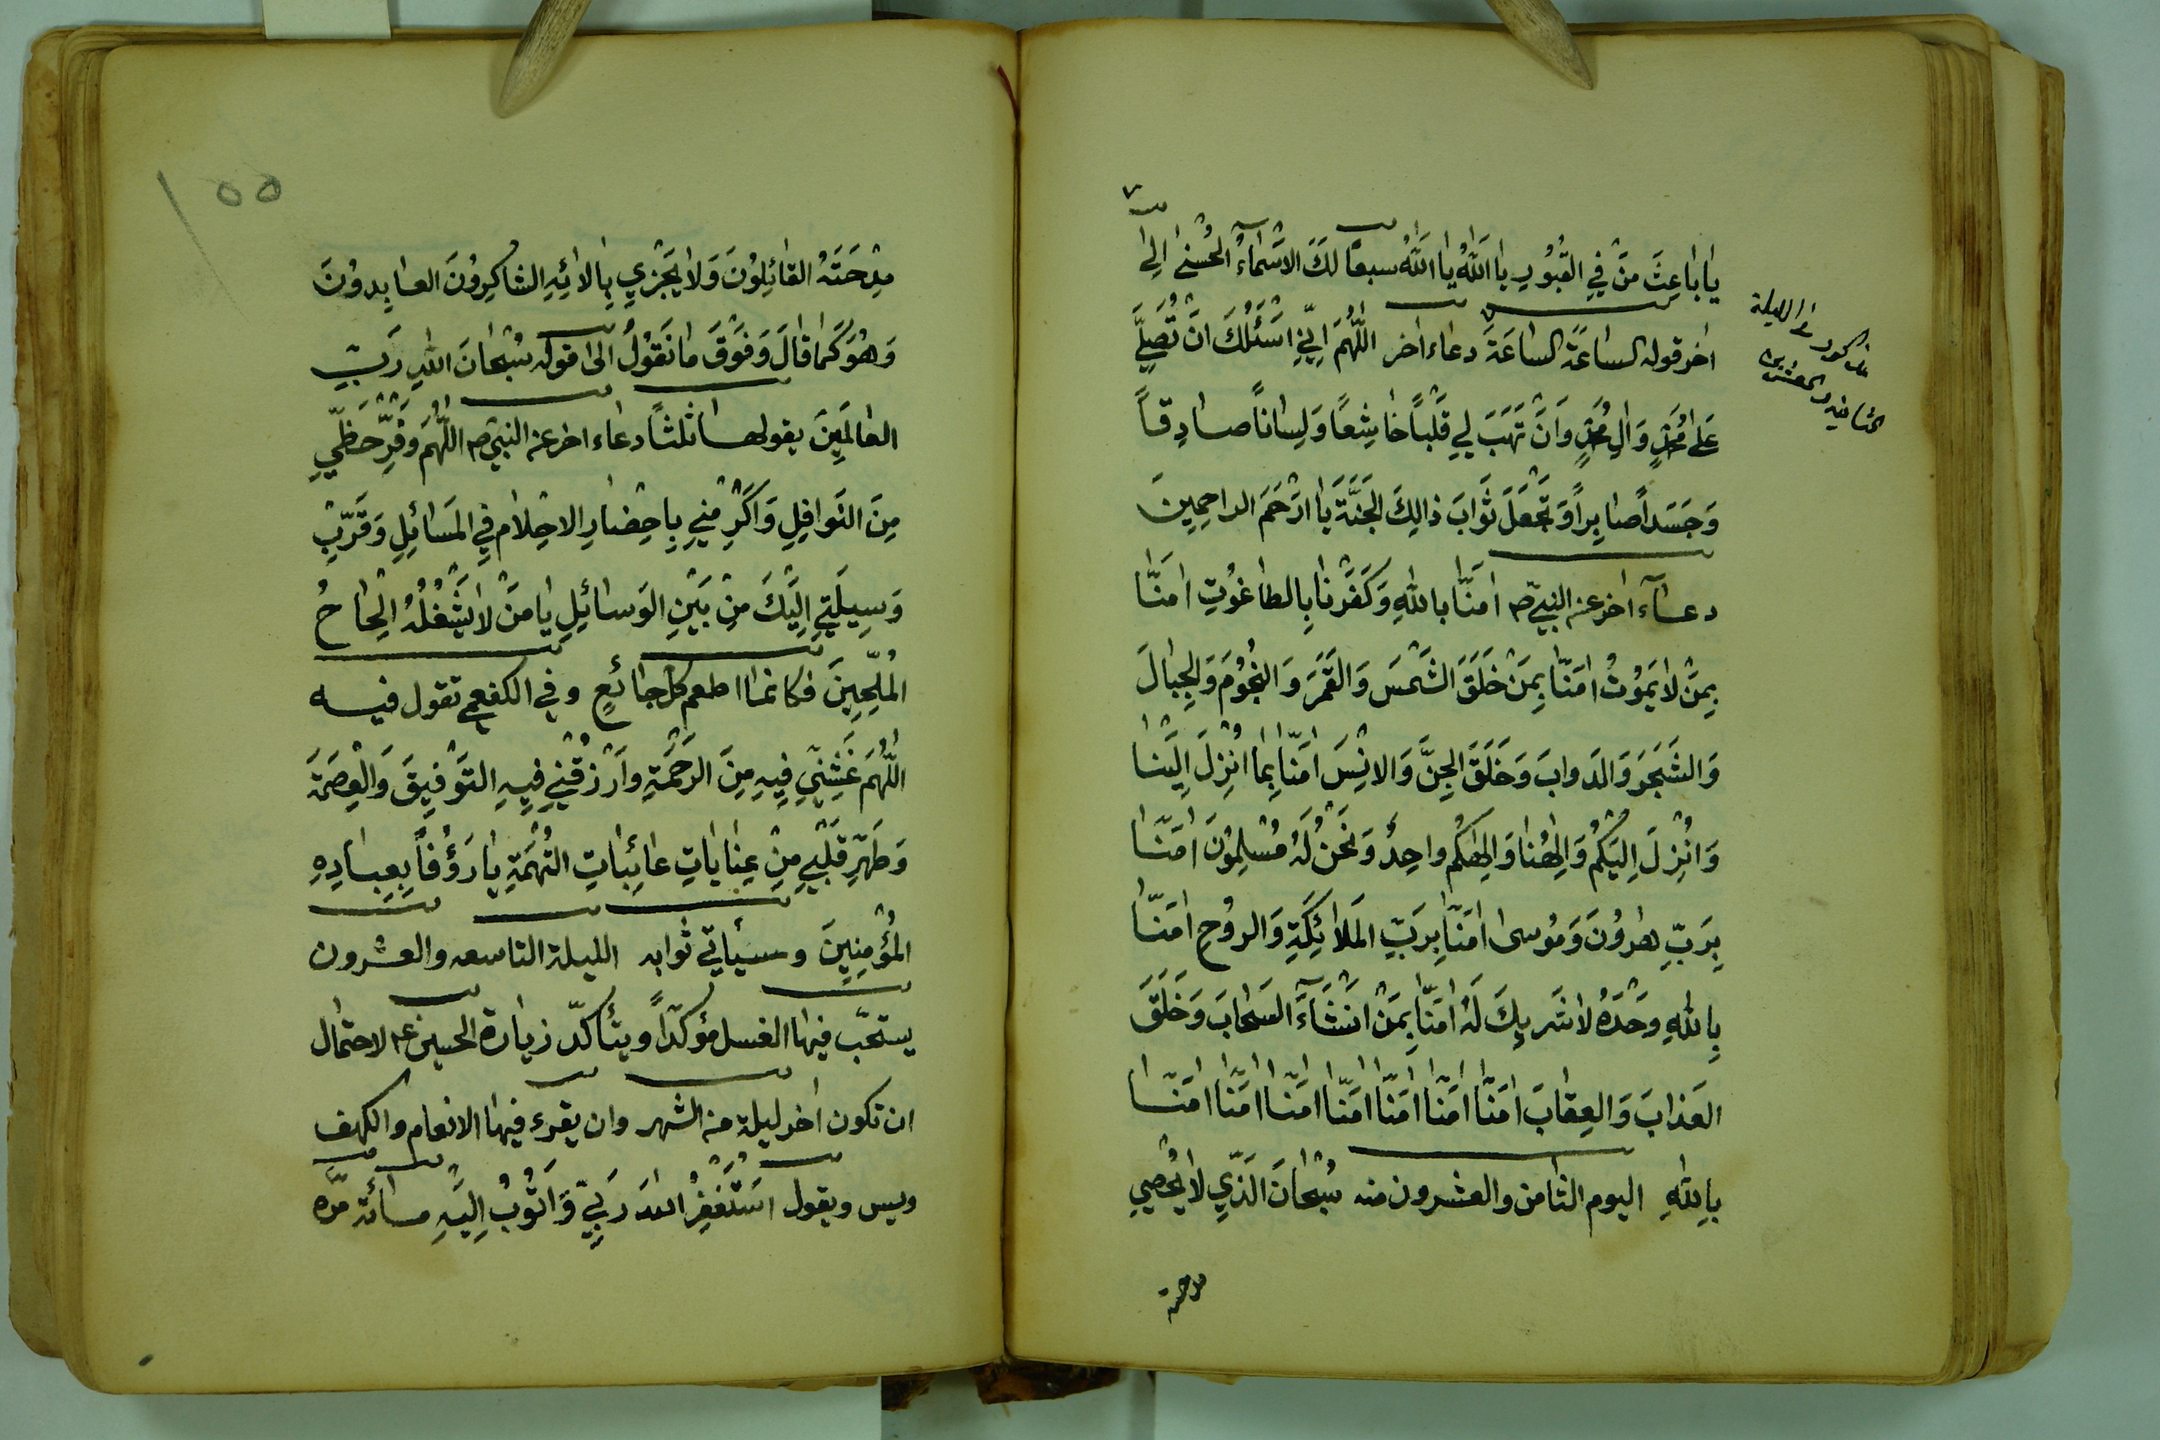 يٰا بٰاعِثَ مَنْ فِي القُبُورِ يا اَللّٰهُ يا اَللّٰهُ سبعاً لَكَ الاَسْمٰآءُ الْحُسْنىٰ اِلىٰ
اخر قوله الساعَةَ الساعَةَ دعاء اخر اللّٰهُمَ اِنّي اَسْئَلُكَ اَنْ تُصَلِّيَ
عَلىٰ مُحَمَّدٍ وَالِ مُحَمَّدٍ وَاَنْ تَهَبَ لِي قَلْباً خٰاشِعًا وَلِسٰاناً صٰادِقاً
وَجَسَداً صٰابِراً وَتَجْعَلَ ثَوٰابَ ذٰالِكَ الْجَنَّةَ يٰا اَرْحَمَ الراحِمِينَ
دعآء اخر عن النبيّ ص اٰمَنّٰا باللّٰهِ وَكَفَرْنٰا بِالطاغوُتِ اٰمَنّٰا
بِمَنْ لاٰ يَموُتُ اٰمَنّٰا بِمَنْ خَلَقَ الشَمْسَ وَالقَمَرَ وَالنُجُوُمَ وَالجِبٰالَ
وَالشَجَرَ وَالدَوابَ وَخَلَقَ الجِنَّ وَالاِنْسَ اٰمَنّٰا بِمٰا اُنْزِلَ اِلَيْنٰا
وَاُنْزِلَ اِلَيْكُمْ وَاِلٰهُنٰا وَاِلٰهُكُمْ واحِدٌ وَنَحْنُ لَهُ مُسْلِمُونَ اٰمَنّٰا
بِرَبِّ هٰروُنَ وَمُوسىٰ اٰمَنّٰا بِرَبِّ المَلاٰئِكَةِ وَالروُحِ اٰمَنّٰا
بِاللّٰهِ وَحْدَهُ لاٰ شَريكَ لَهُ اٰمَنّٰا بِمَنْ اَنْشَآءَ السَحٰابَ وَخَلَقَ
العَذابَ وَالعِقٰابَ اٰمَنّٰا اٰمَنّٰا اٰمَنّٰا اٰمَنّٰا اٰمَنّٰا اٰمَنّٰا اٰمَنّٰا
بِاللّٰهِ اليوم الثامن والعشرون منه سُبْحٰانَ الَذِّي لاٰ يُحْصِي
مدحته
مذكور في الليلة
الثانية والعشرين
١٥٥
مِدْحَتَهُ القٰائِلوُنَ وَلاٰ يَجْزي بِاٰلاٰئِهِ الشاكِروُنَ العٰابِدوُنَ
وَهُوَ كَمٰا قٰالَ وَفَوْقَ مٰا نَقوُلُ الى قوله سُبْحٰانَ اللّٰهِ رَبِّ
العٰالَمِينَ يقولها ثلثاً دعاء اخر عن النبيّ ص اللّٰهُمَ وَفِّرْ حَظّي
مِنَ النَوافِلِ وَاَكْرِمْني بِاِحْضٰارِ الاحْلامِ فِي المَسٰائِلِ وَقَرّبْ
وَسيلَتي اِلَيْكَ مِنْ بَيْنِ الوَسٰائِلِ يٰا مَنْ لاٰ يَشْغَلُهُ اِلْحٰاحُ
المُلِحّينَ فكانما اطعم كل جائعٍ وفي الكفعمي تقول فيه
اللّٰهُمَ غَشِّني فيهِ مِنَ الرَحْمَةِ وارْزُقْني فيهِ التَوْفيقَ وَالْعِصْمَةَ
وَطَهِّرْ قَلْبي مِنْ عِنٰايٰاتِ عٰائِبٰاتِ التُهْمَةِ يٰا رَؤُفاً بِعِبٰادِهِ
المُؤْمِنِينَ وسيأتي ثوابه الليلة التاسعه والعشرون
يستحّب فيها الغسل مؤكدّاً ويتأكدّ زيارة الحسين ع لاحتمال
ان تكون اخر ليلة من الشهر وان يقرء فيها الانعام والكهف
ويس ويقول اَسْتَغْفِرُ اللهَ رَبّي وَاَتُوبُ اِلَيْهِ مائة مرّه